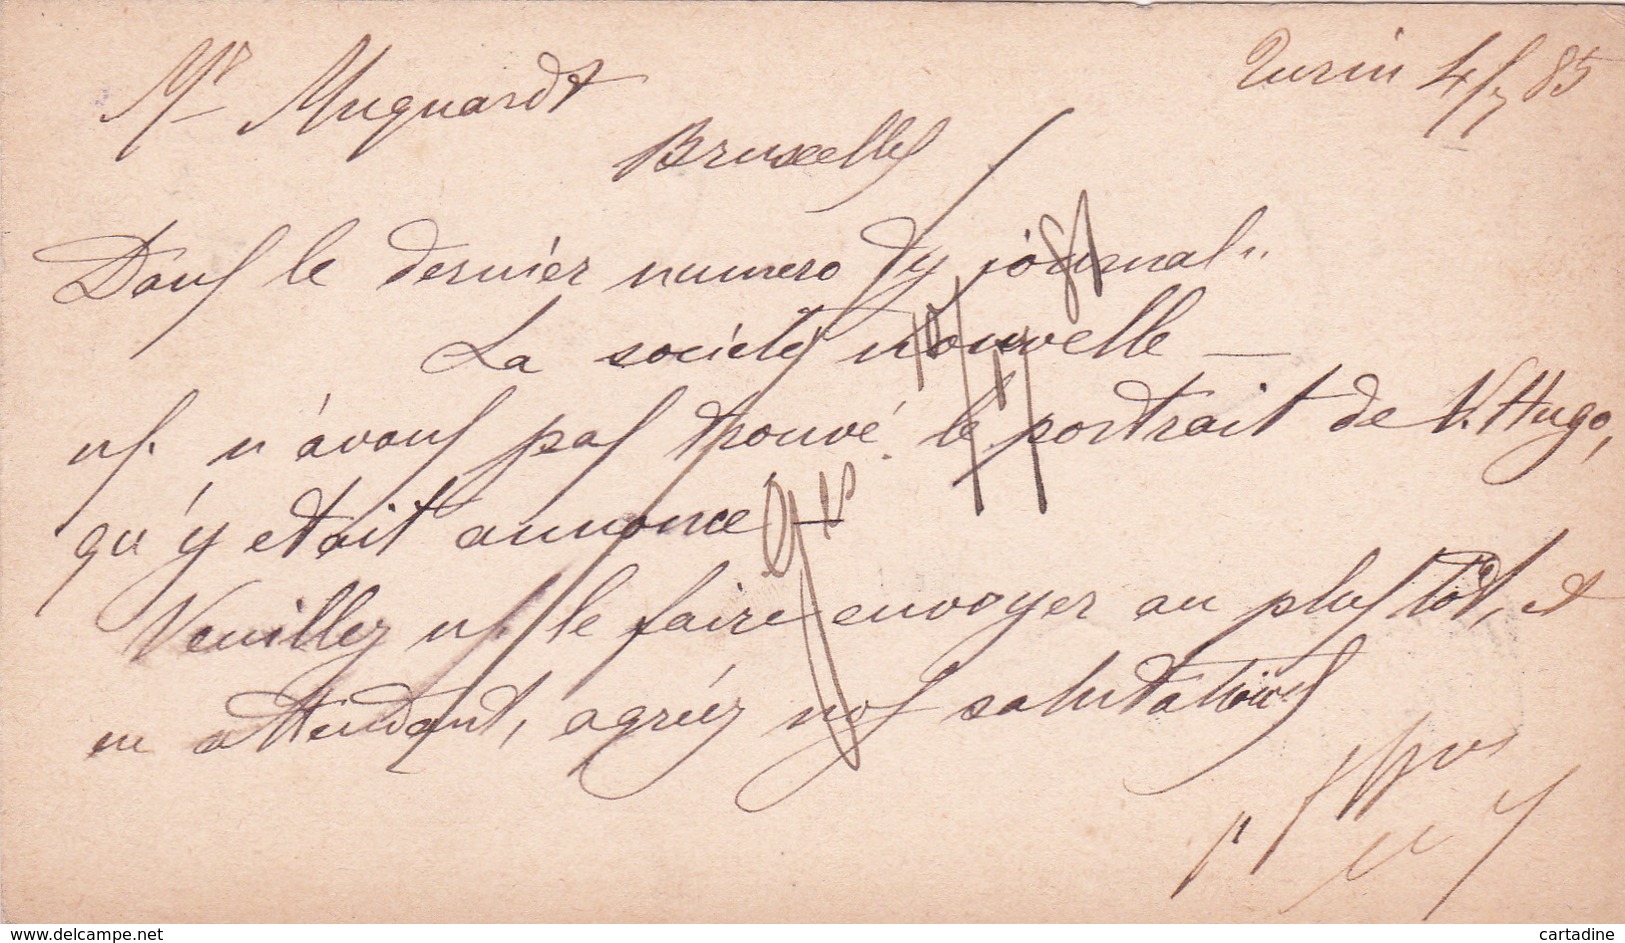 Turin 4/7 85
Mr Muquardt
Bruxelles
Dans le dernier numero du journal "
La société nouvelle —
ns. n'avons pas trouvé le portrait de V. Hugo,
qu'y etait annonce —
Veuillez ns. le faire envoyer au plus tôt, et
en attendant, agréez nos salutations
www.delcampe.net
cartadine